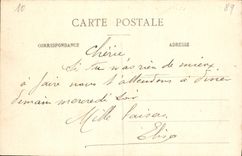 10
89
CARTE POSTALE
CORRESPONDANCE
ADRESSE
Chérie
Si tu n'as rien de mieux
à faire nous t'attendons à diner
demain mercredi soir
Mille baisers
Elisa